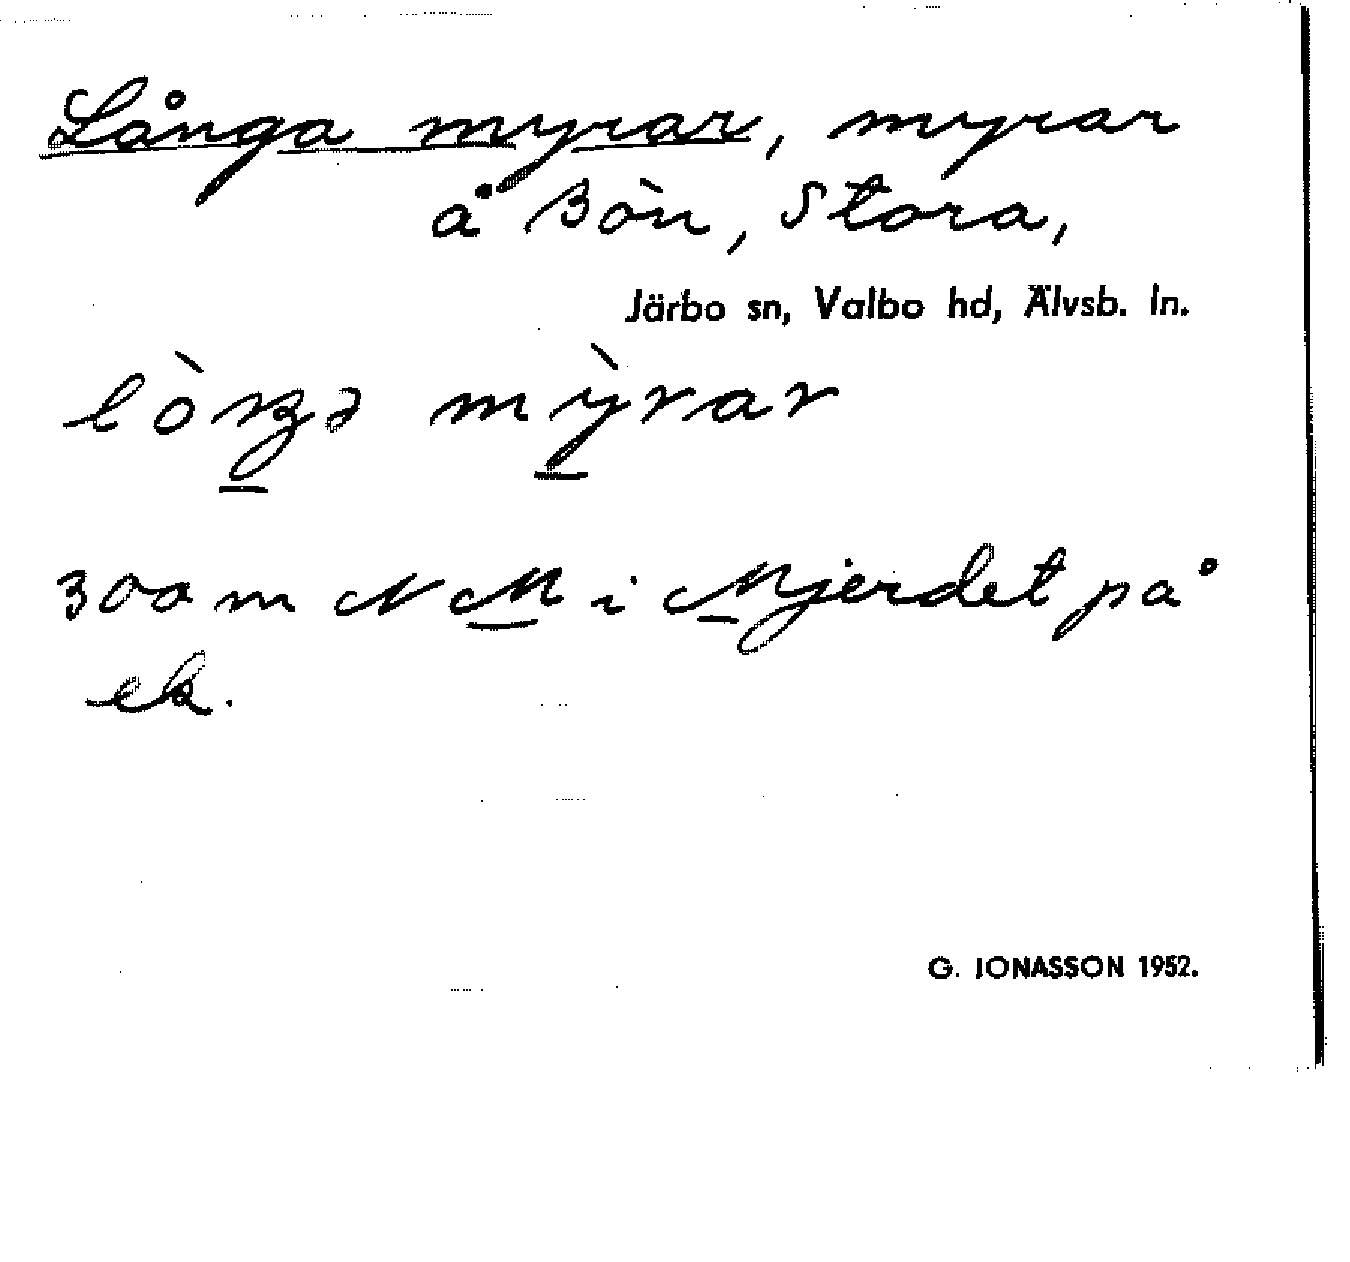 Långa myrar, myrar
å Bön, Stora,
Järbo sn, Valbo hd, Älvsb. ln.
myrar
300 m N M i Mjerdet på
ek.
G. JONASSON 1952.